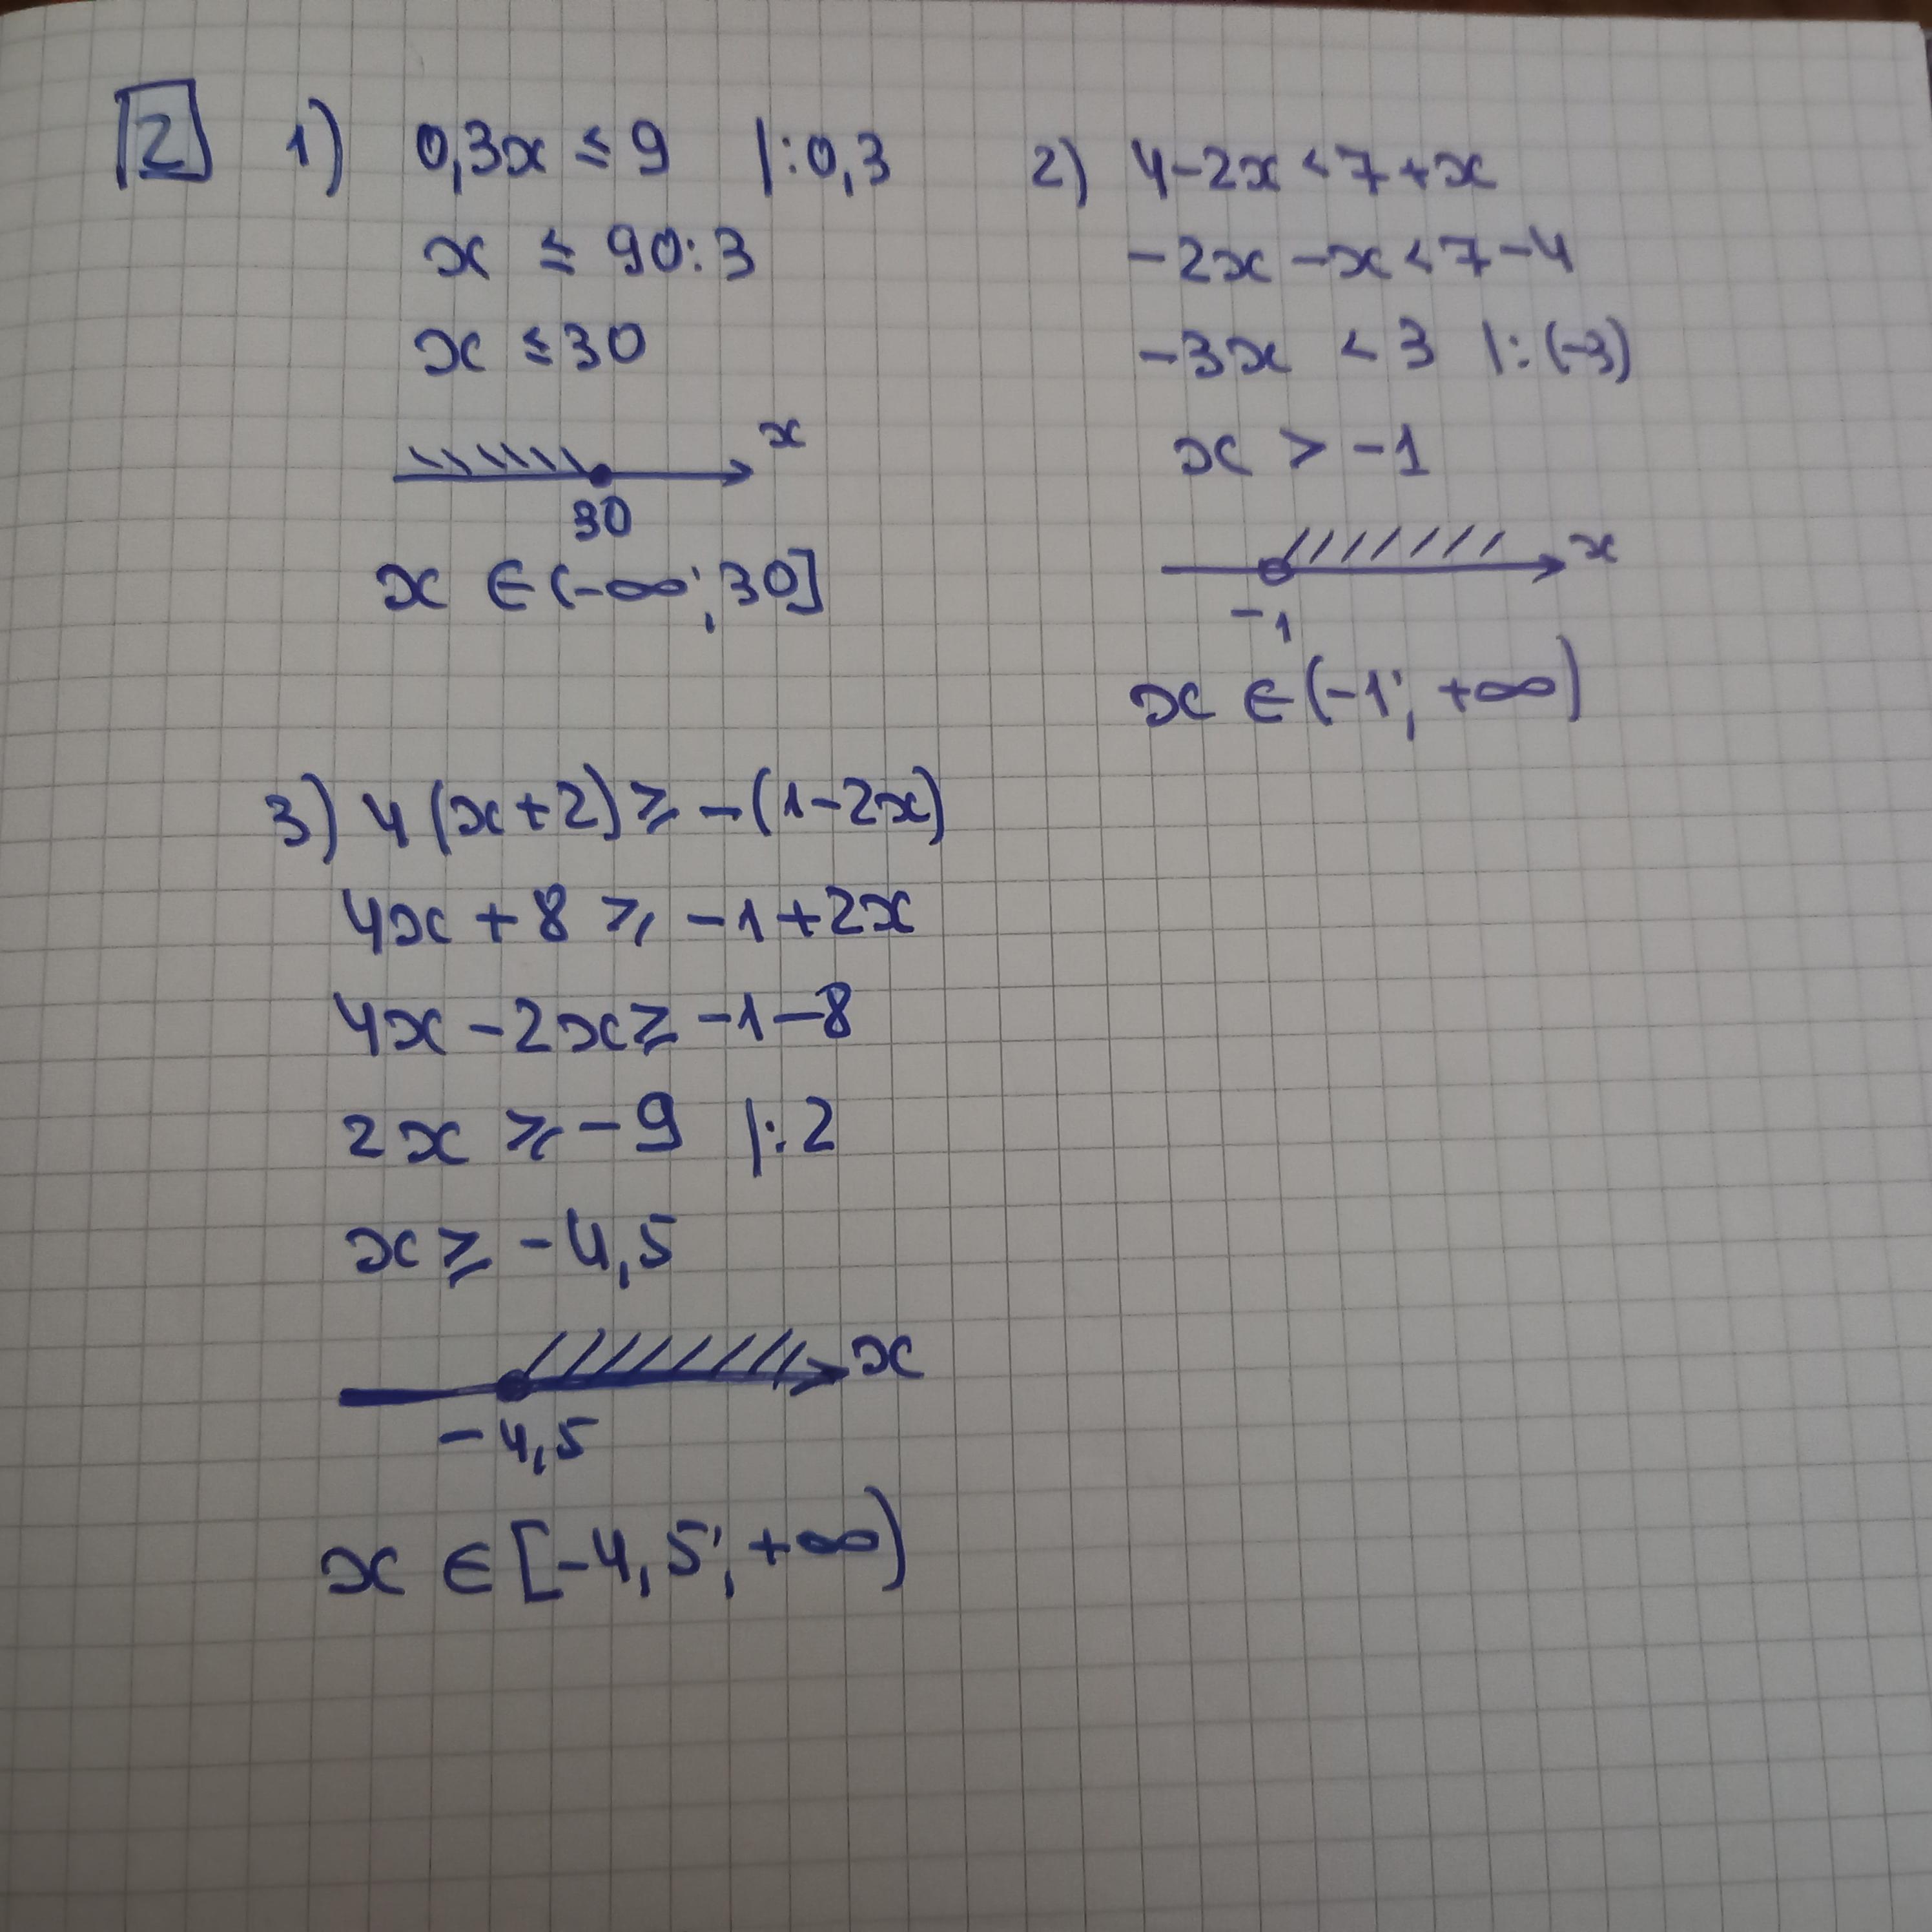 2
1) 0,3x ≤ 9 |:0,3
x ≤ 90:3
x ≤ 30
x
30
x ∈ (-∞; 30]
2) 4-2x < 7+x
-2x-x < 7-4
-3x < 3 |:(-3)
x > -1
x
-1
x ∈ (-1; +∞)
3) 4(x+2) ≥ -(1-2x)
4x + 8 ≥ -1+2x
4x - 2x ≥ -1-8
2x ≥ -9 |:2
x ≥ -4,5
x
-4,5
x ∈ [-4,5; +∞)